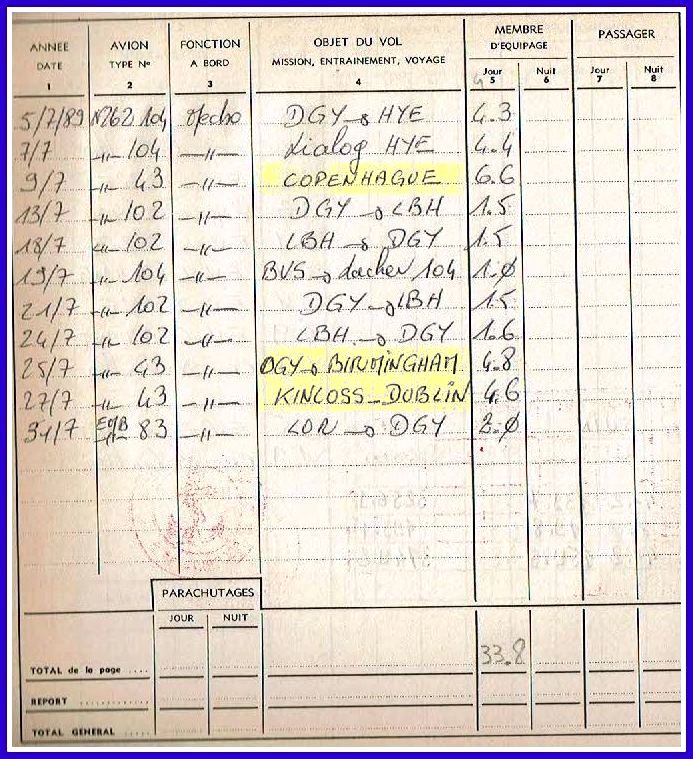 ANNEE DATE 1 AVION TYPE N° 2 FONCTION A BORD 3 OBJET DU VOL MISSION, ENTRAINEMENT, VOYAGE 4 MEMBRE D'EQUIPAGE Jour 5 Nuit 6 PASSAGER Jour 7 Nuit 8
5/7/89 N262 104 Mecbo DGY → HYE 4.3
7/7 -"- 104 -"- dialog HYE 4.4
9/7 -"- 43 -"- COPENHAGUE 6.6
13/7 -"- 102 -"- DGY → LBH 1.5
18/7 -"- 102 -"- LBH → DGY 1.5
19/7 -"- 104 -"- BVS → 104 1.0
21/7 -"- 102 -"- DGY → LBH 1.5
24/7 -"- 102 -"- LBH → DGY 1.6
25/7 -"- 43 -"- DGY → BIRMINGHAM 4.8
27/7 -"- 43 -"- KINLOSS - DUBLIN 4.6
31/7 83 -"- LOR → DGY 2.0
PARACHUTAGES
JOUR NUIT
TOTAL de la page 33.8
REPORT
TOTAL GENERAL